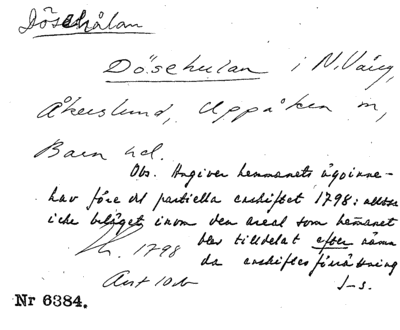 Dösekålan
Dösekulan i N. Vång,
Åkerslund, Uppåkra sn,
Bara hd.
Obs. Angiver hemmanets ägoinne-
hav före det partiella enskiftet 1798: alltså
icke beläget inom den areal som hemanet
blev tilldelat efter nämn
da enskiftesförrättning
1798
J-s.
Nr 6384.